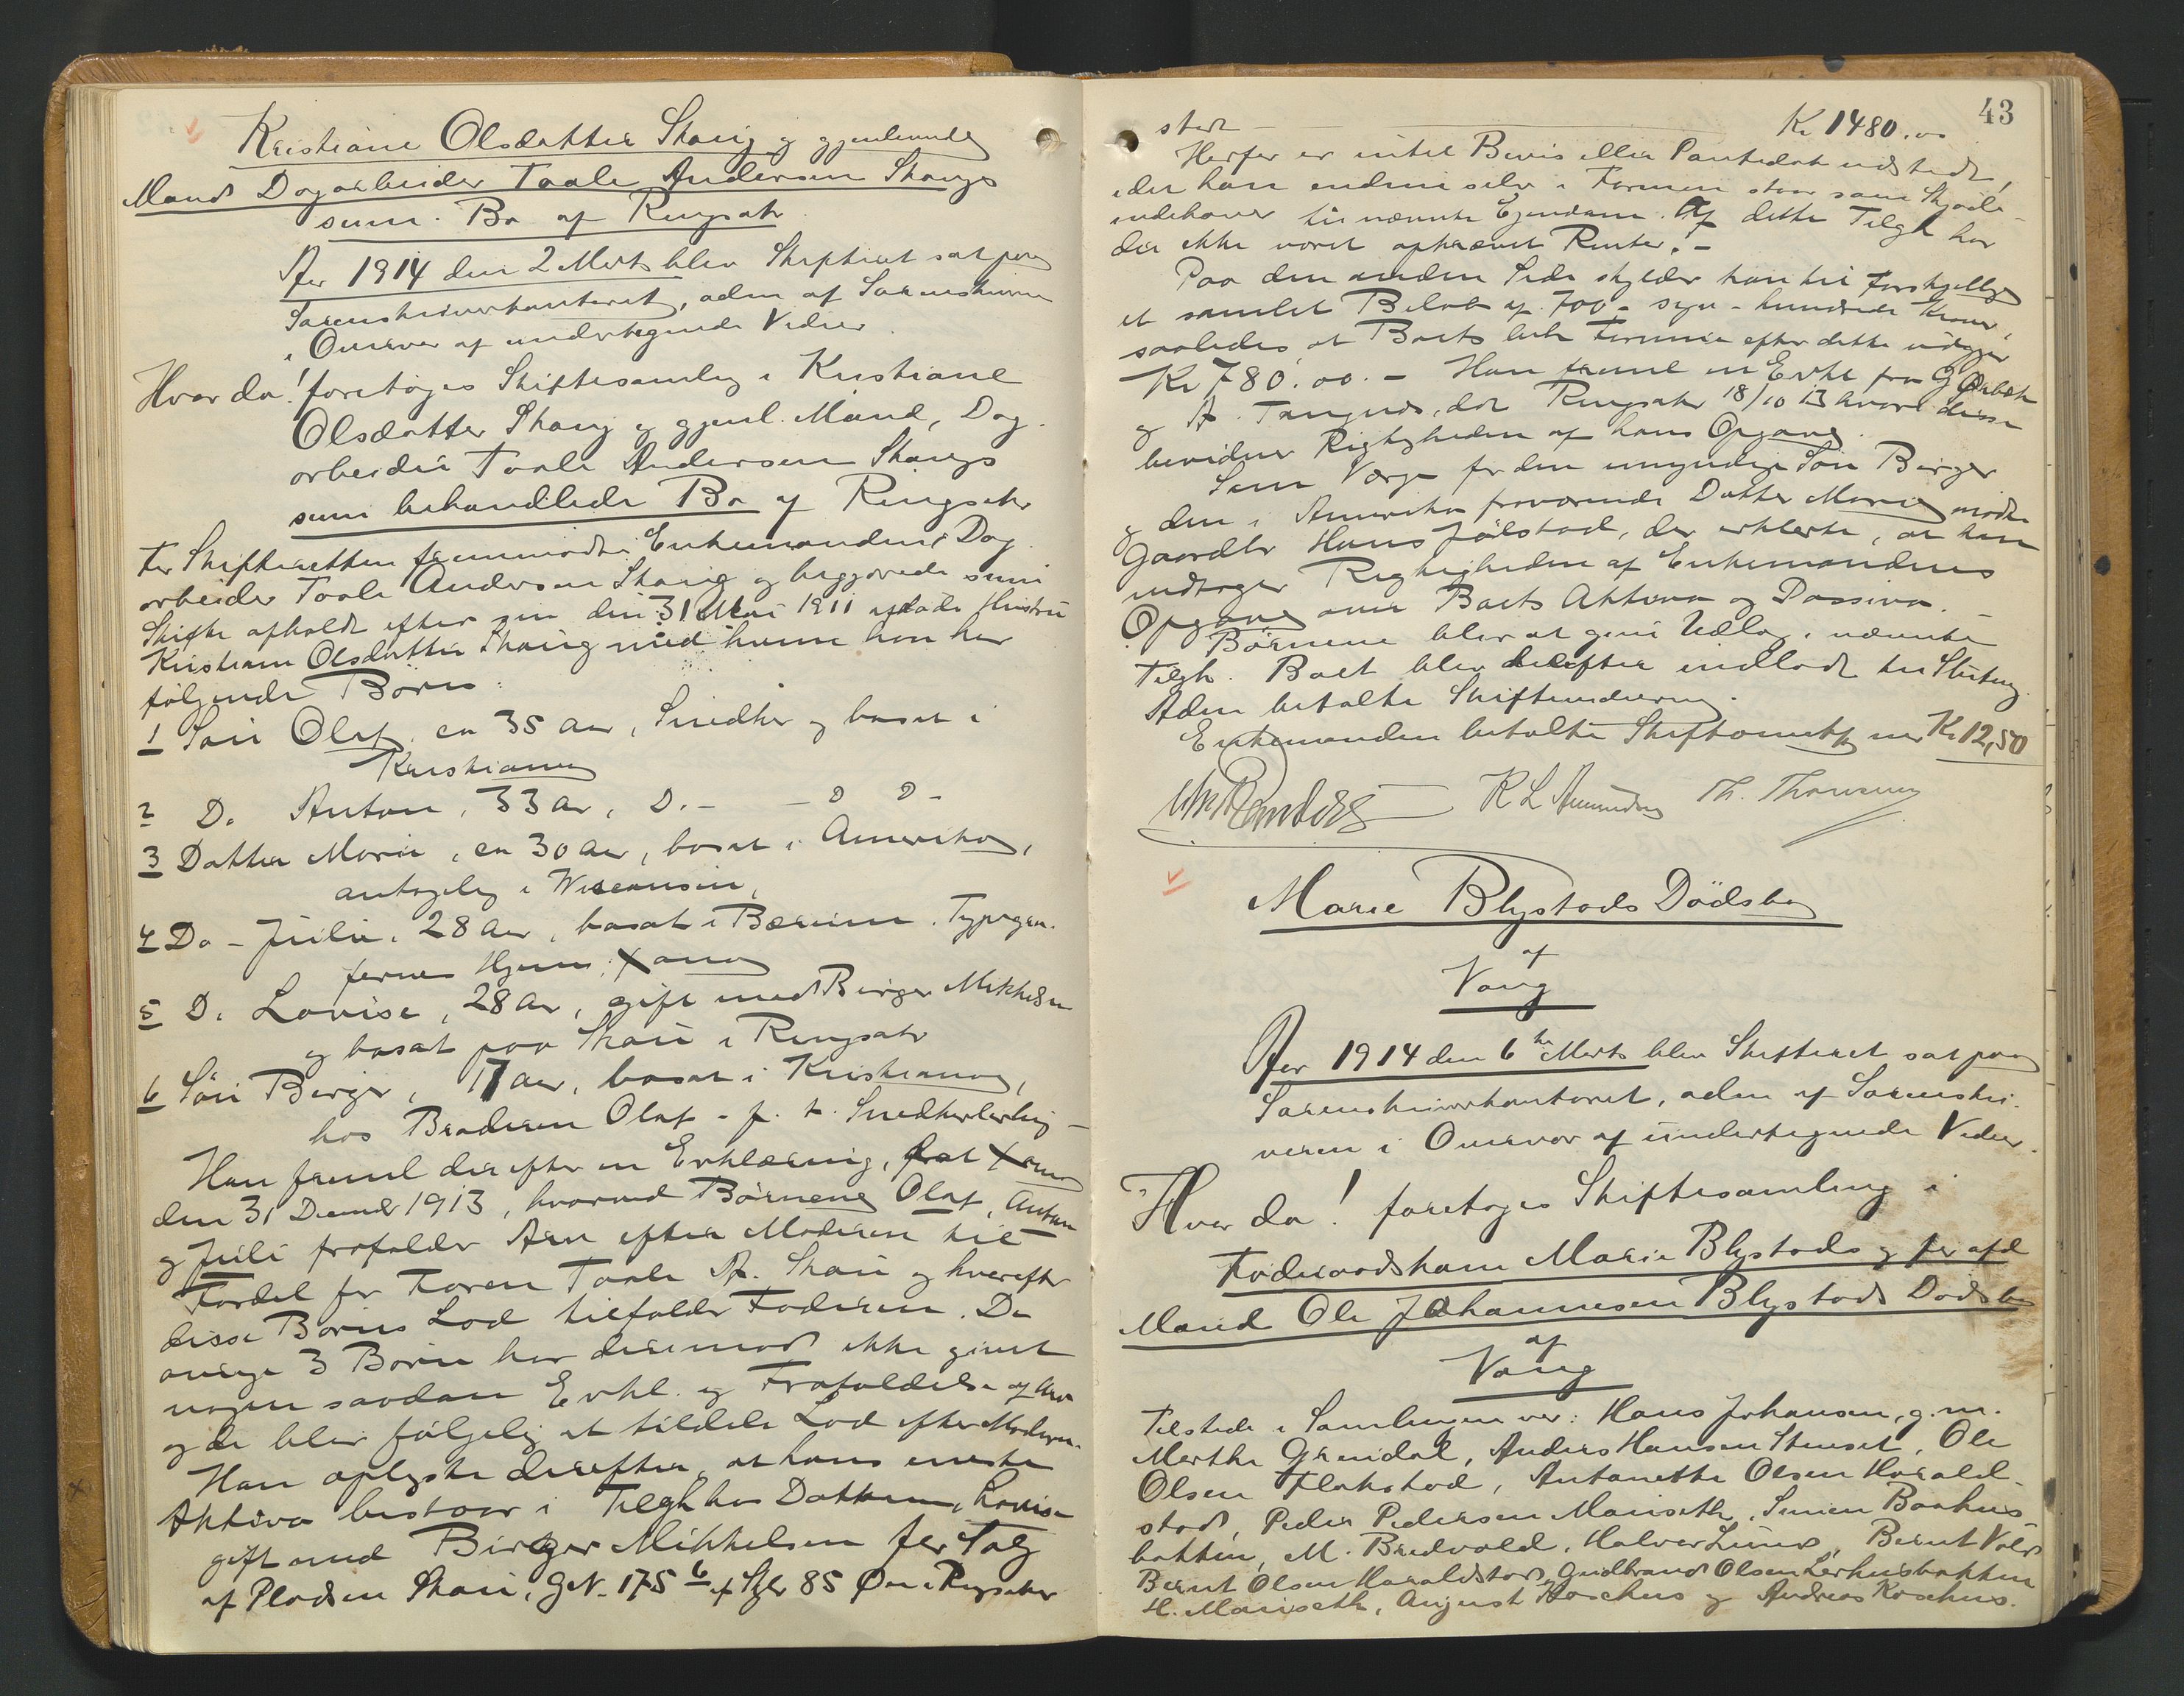 Kristiane Olsdatter Skaug og gjenlevende
Mand Dagarbeider Taale Andersen Skaugs
sum. Bo af Ringsaker
Aar 1914 den 2 Marts blev Skifteret sat paa
Sorenskriverkontoret, adm af Sorenskriveren
i Overvær af undertegnede Vidner
Hvor da! foretoges Skiftesamling i Kristiane
Olsdatter Skaug og gjenl. Mand, Dag-
arbeider Taale Andersen Skaugs
sum behandlede Bo af Ringsaker
For Skifteretten fremmødte Enkemanden Dag
arbeider Taale Andersen Skaug og begjærede sum
Skifte afholdt efter sin den 31 Mai 1911 afdøde Hustru
Kristiane Olsdatter Skaug med hvem han har
følgende Børn:
1 Søn Olaf en 35 Aar, Snedker og bosat i
Kristiania
2 Do Anton, 33 Aar, D. - - D D -
3 Datter Marie, en 30 Aar, bosat i Amerika,
antagelig i Wisconsin,
4 Do - Julie, 28 Aar, bosat i Bærum. Typogra-
fernes Hjem, Xania
5 D. Lovise, 28 Aar, gift med Birger Mikkelsen
og bosat paa Skau i Ringsaker
6 Søn Birger, 17 Aar, bosat i Kristiania,
hos Broderen Olaf - p. t. Snedkerlærling -
Han freml derefter en Erklæring, dat Xania
den 31 Decemb 1913, hvorved Børnene Olaf, Anton
og Juli frafalder Arv efter Moderen til
Fordel for Faren Taale A. Skau og hvorefter
disse Børns Lod tilfalder Faderen. De
øvrige 3 Børn har derimod ikke givet
nogen saadan Erkl. og Frafaldelse af Arv
og de bliv følgelig at tildele Lod efter Moderen.
Han oplyste derefter, at hans eneste
Aktiva bestaar i Tilgh hos Datteren, Lovise
gift med Birger Mikkelsen for Salg
af Pladsen Skau, GN. 175 6 af Skyld 85 Øre i Ringsaker
43
sted - Kr 1480.00
Herfor er intet Bevis eller Pantedok udstedt,
idet han endnu selv i Formen staar som Skjøde-
indehaver til nævnte Ejendom. Af dette Tilgh har
der ikke været opkrævet Renter. -
Paa den anden Side skylder han til Forskjellige
et samlet Beløb af 700 - syv - hundrede Kroner,
saaledes at Boets hele Formue efter dette udgjør
Kr 780.00. - Han freml en Erkl fra G
og A. Tangnes, dat Ringsaker 18/10 13 hvori disse
bevidner Rigtigheden af hans Opgave.
Som Værge for den umyndige Søn Birger
og den i Amerika fraværende Datter Marie mødte
Gaardbr Hans Jølstad, der erklærte, at han
vedtager Rigtigheden af Enkemandens
Opgave over Boets Aktiva og Passiva. -
Børnene blev at give Udlæg i nævnte
Tilgh. Boet blev derefter indladt til Slutning.
Adm betalte Skiftevidnerne.
Enkemanden betalte Skifteomk med Kr 12,50
K L Amundsen Th. Thorsen
Marie Blystads Dødsbo
af
Vang
Aar 1914 den 6te Marts blev Skifteret sat paa
Sorenskriverkontoret, adm af Sorenskri-
veren i Overvær af undertegnede Vidner.
Hvor da! foretoges Skiftesamling i
Føderaadskone Marie Blystads og før afd
Mand Ole Johannesen Blystads Dødsbo
af
Vang
Tilstede i Samlingen var: Hans Johansen, g. m.
Marthe Grendal, Anders Hansen Stenset, Ole
Olsen Flakstad, Antonette Olsen Harald-
stad, Peder Pedersen Mariseth, Simen Baahus-
bakken, M. Bredvold, Halvor Lund, Bernt Vold
Bernt Olsen Haraldstad, Gudbrand Olsen Lerhusbakken
H. Mariseth, August Koschus og Andreas Koschus.